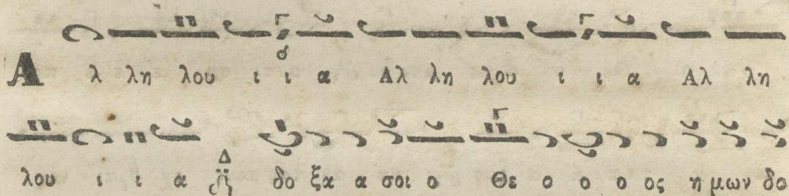 Α λ λη λου ι ι α Αλ λη λου ι ι α Αλ λη
λου ι ι α Δ δο ξα α σοι ο Θε ο ο ο ος η μων δο